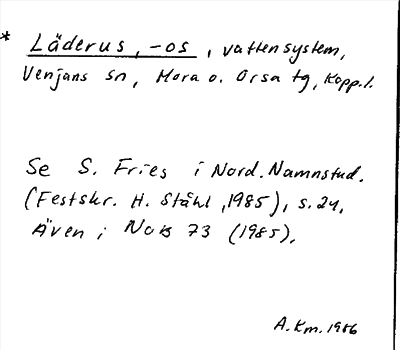 * Läderus, -os, vattensystem,
Venjans sn, Mora o. Orsa tg, Kopp.l.
Se S. Fries i Nord. Namnstud.
(Festskr. H. Ståhl, 1985), s. 24.
Även i NoB 73 (1985).
A. Km. 1986